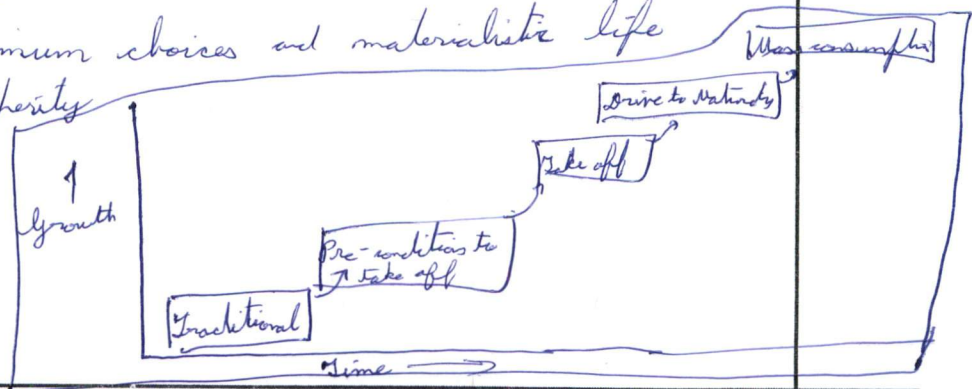 mum choices and materialistic life
Mass consumptio
perity
Drive to Maturity
Take off
Growth
Pre-conditions to
take off
Traditional
Time